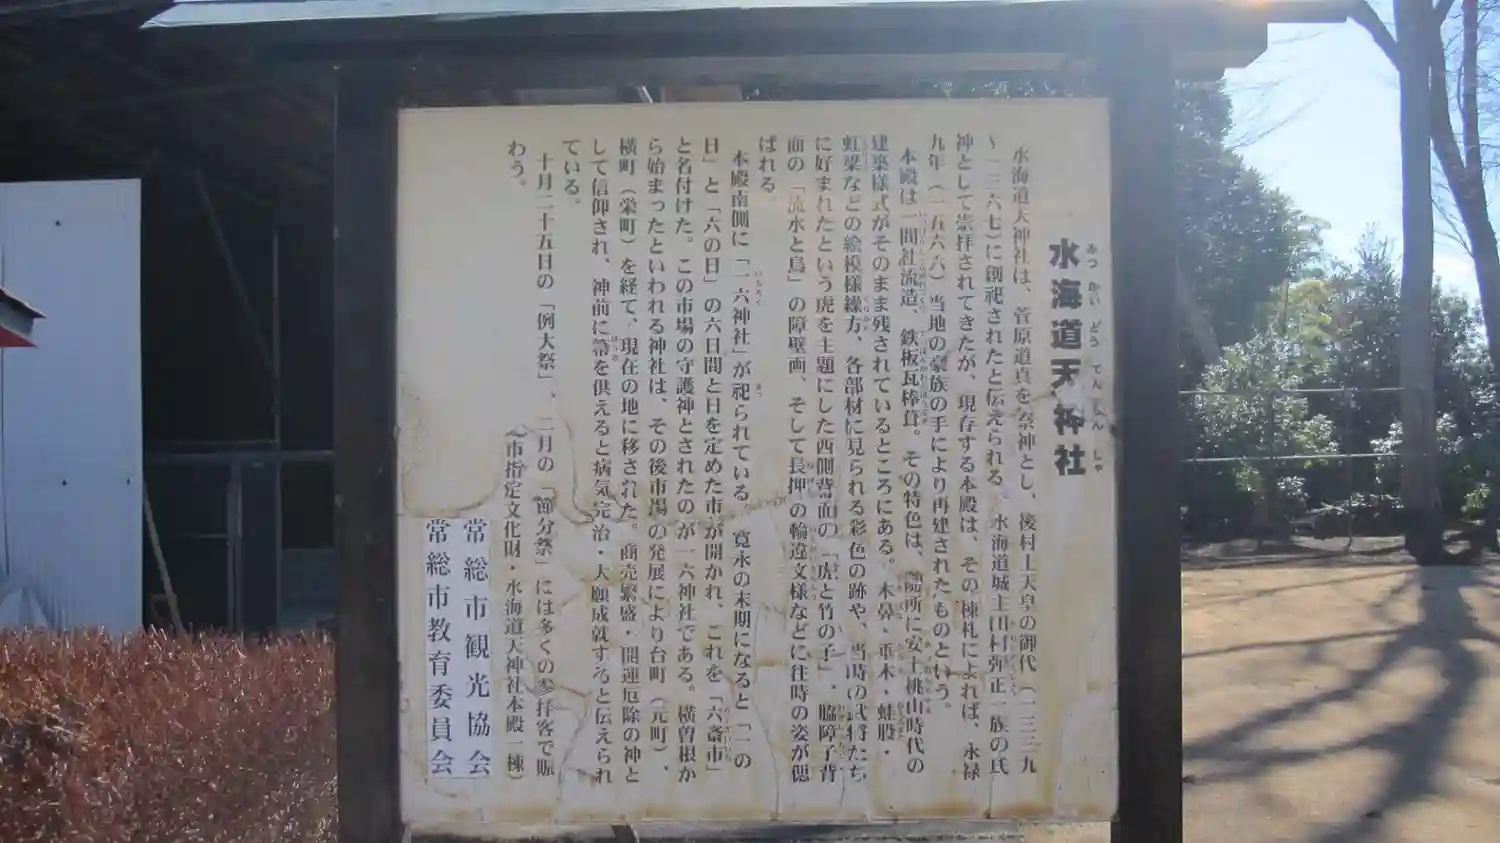 水海道天神社
みつかいどうてんじんしゃ
水海道天神社は、菅原道真を祭神とし、後村上天皇の御代（一三三九
～一三六七）に創祀されたと伝えられる。水海道城主田村弾正一族の氏
神として崇拝されてきたが、現存する本殿は、その棟札によれば、永禄
九年（一五六六）当地の豪族の手により再建されたものという。
本殿は一間社流造、鉄板瓦棒葺。その特色は、随所に安土桃山時代の
建築様式がそのまま残されているところにある。木鼻・垂木・蛙股・
虹梁などの絵模様繰方、各部材に見られる彩色の跡や、当時の武将たち
に好まれたという虎を主題にした西側背面の「虎と竹の子」、脇障子背
面の「流水と鳥」の障壁画、そして長押の輪違文様などに往時の姿が偲
ばれる。
本殿南側に「一六神社」が祀られている。寛永の末期になると「一の
日」と「六の日」の六日間と日を定めた市が開かれ、これを「六斎市」
と名付けた。この市場の守護神とされたのが一六神社である。横曽根か
ら始まったといわれる神社は、その後市場の発展により台町（元町）、
横町（栄町）を経て、現在の地に移された。商売繁盛・開運厄除の神と
して信仰され、神前に箒を供えると病気完治・大願成就すると伝えられ
ている。
十月二十五日の「例大祭」、二月の「節分祭」には多くの参拝客で賑
わう。
市指定文化財・水海道天神社本殿一棟）
常総市観光協会
常総市教育委員会